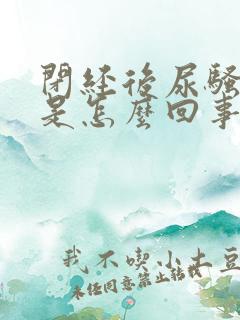 閉經後尿騷
是怎麼回事
我不喫小土豆
未經同意禁止轉載